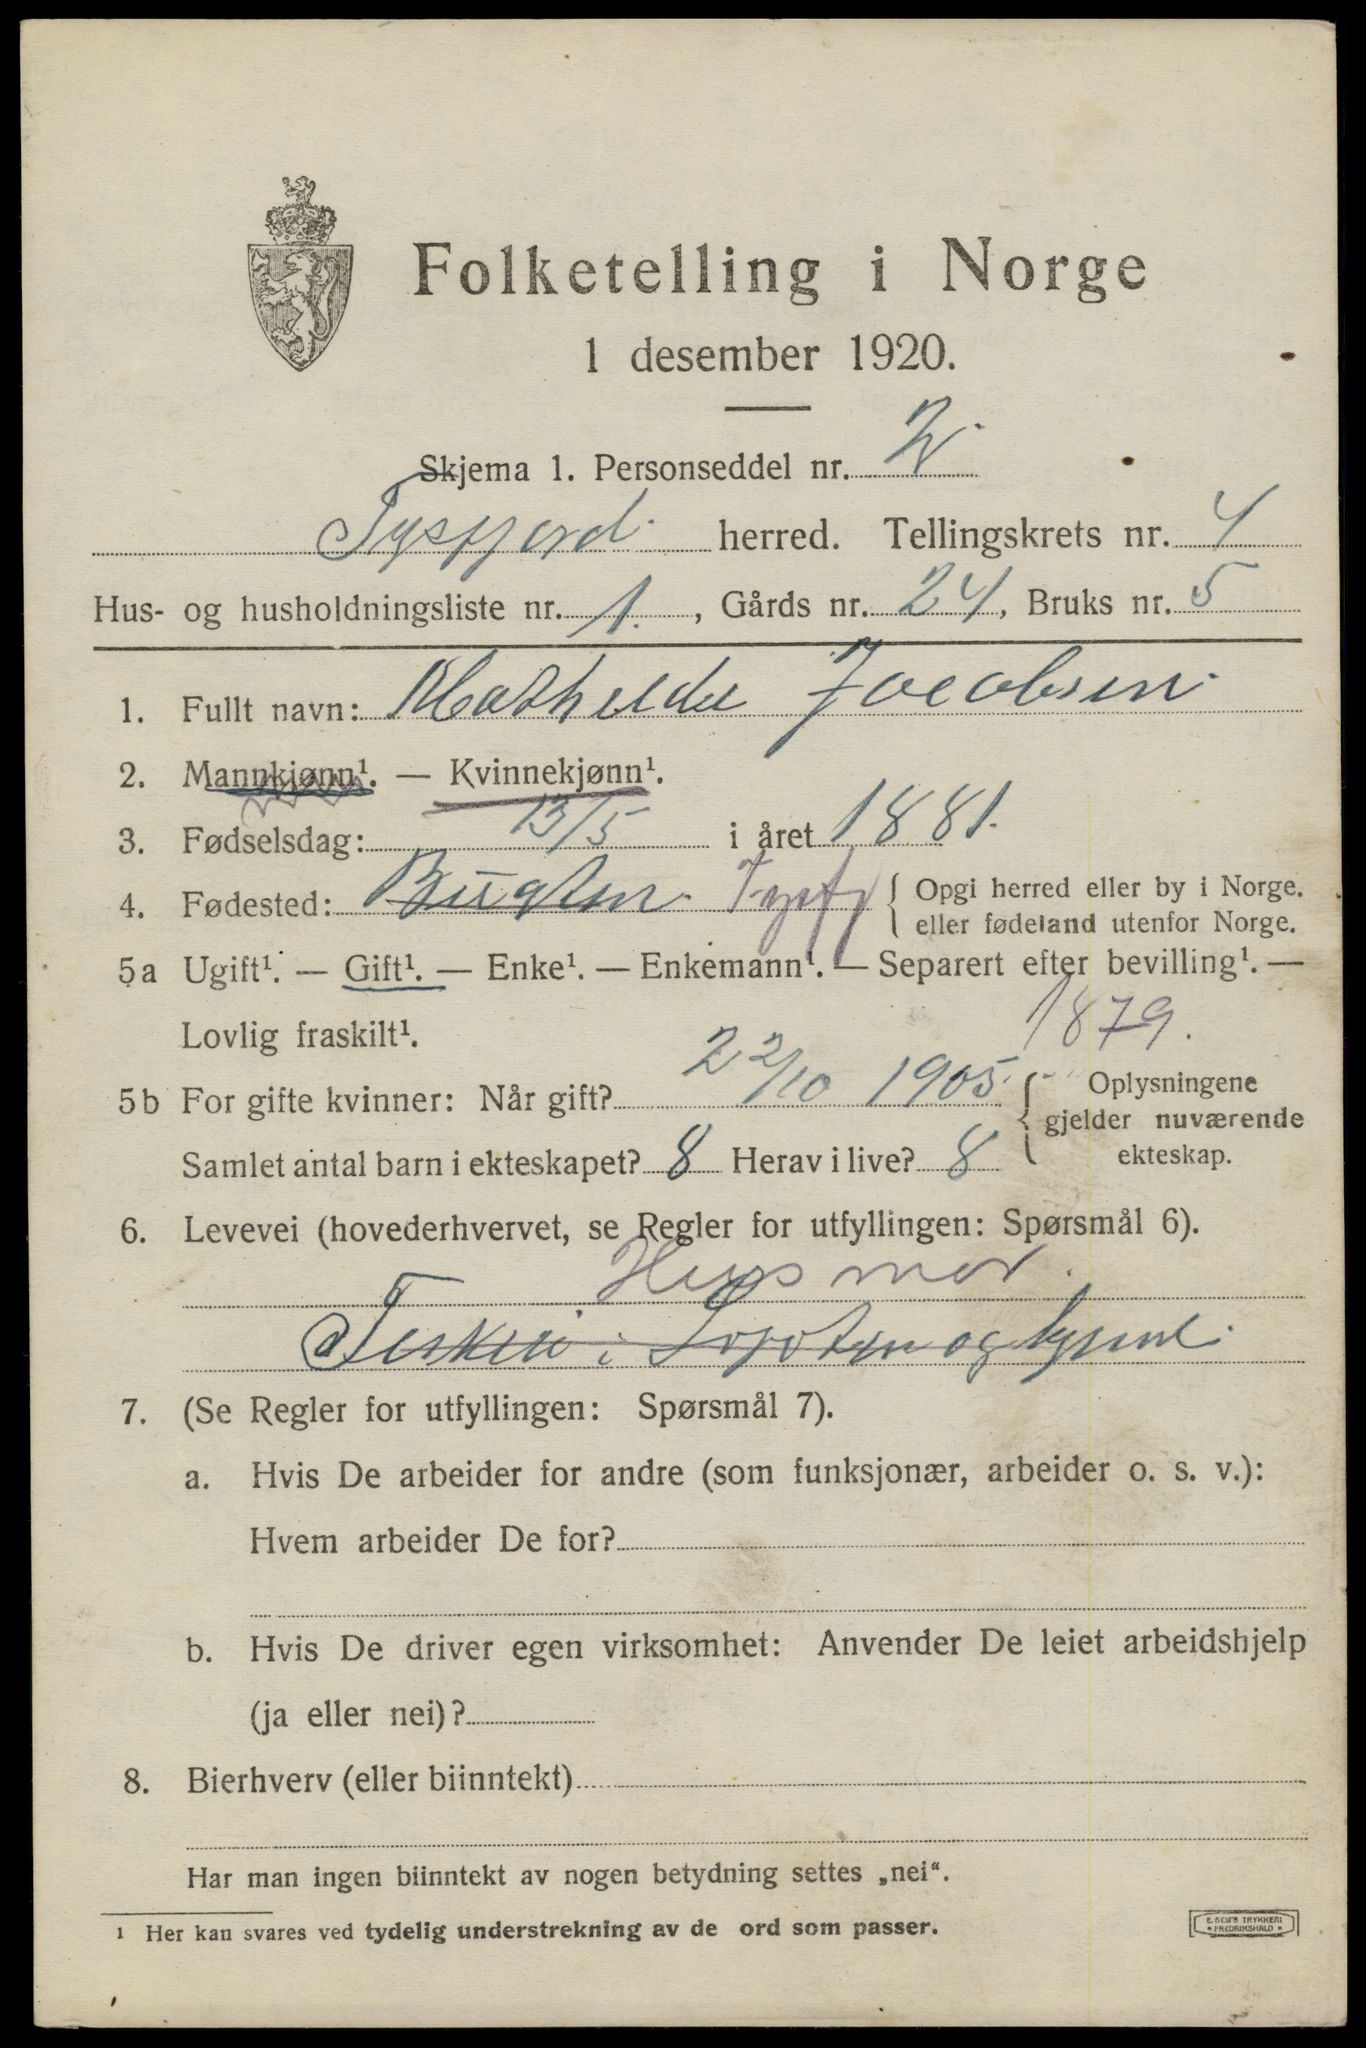 Folketelling i Norge
1 desember 1920.
Skjema 1. Personseddel nr. 2
Tysfjord herred. Tellingskrets nr. 4
Hus- og husholdningsliste nr. 1., Gårds nr. 24, Bruks nr. 5
1. Fullt navn: Mathelde Jacobsen
2. Mannkjønn¹. — Kvinnekjønn¹.
3. Fødselsdag: 13/5 i året 1881.
4. Fødested: Bugten Tysfj { Opgi herred eller by i Norge.
eller fødeland utenfor Norge.
5a Ugift¹. — Gift¹. — Enke¹. — Enkemann¹. — Separert efter bevilling¹. —
Lovlig fraskilt¹. 1879.
5b For gifte kvinner: Når gift? 22/10 1905. { Oplysningene
gjelder nuværende
ekteskap.
Samlet antal barn i ekteskapet? 8 Herav i live? 8
6. Levevei (hovederhvervet, se Regler for utfyllingen: Spørsmål 6).
Husmor.
i og
7. (Se Regler for utfyllingen: Spørsmål 7).
a. Hvis De arbeider for andre (som funksjonær, arbeider o. s. v.):
Hvem arbeider De for?
b. Hvis De driver egen virksomhet: Anvender De leiet arbeidshjelp
(ja eller nei)?
8. Bierhverv (eller biinntekt)
Har man ingen biinntekt av nogen betydning settes „nei“.
¹ Her kan svares ved tydelig understrekning av de ord som passer.
E. SEM'S TRYKKERI
FREDRIKSHALD